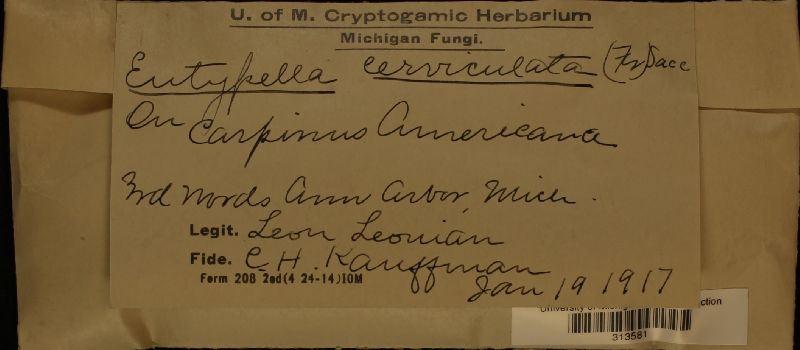 U. of M. Cryptogamic Herbarium
Michigan Fungi.
Eutypella cerviculata (Fr) Sacc
On Carpinus Americana
3rd Ann Arbor, Mich.
Legit. Leon Leonian
Fide. C. H. Kauffman
Form 208 2nd (4 24-14) 10M
Jan 19 1917
University of ction
313581